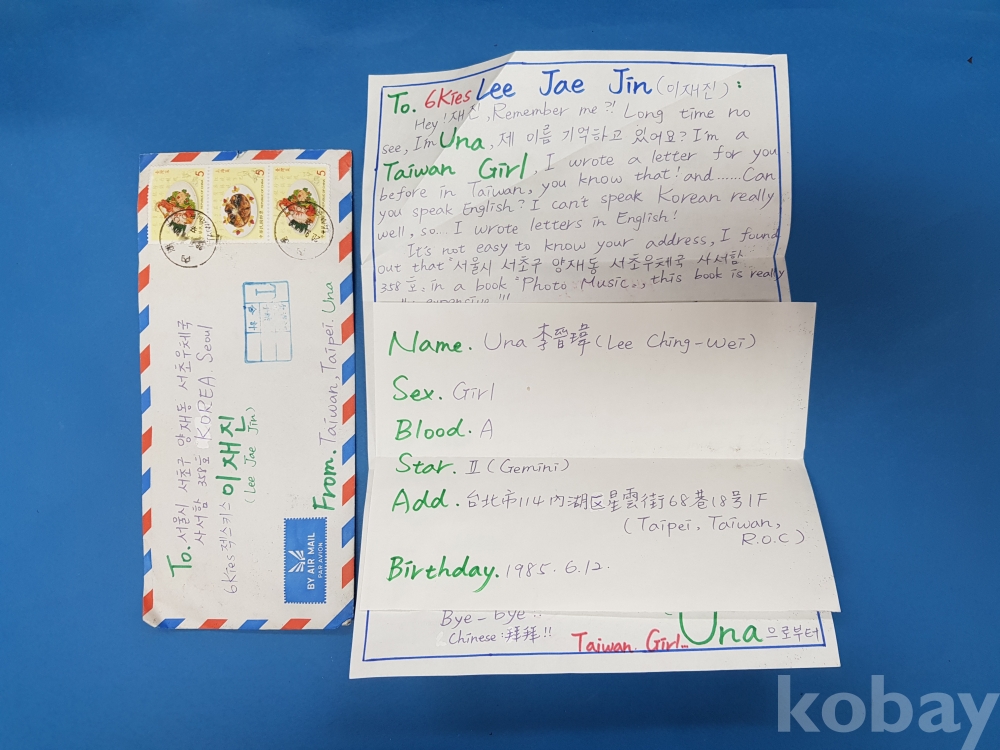 To. 서울시 서초구 양재동 서초우체국
사서함 358호 KOREA. Seoul
6Kies 젝스키스 이재진
(Lee Jae Jin)
From. Taiwan, Taipei. Una
BY AIR MAIL
PAR AVION
5
5
5
To. 6Kies Lee Jae Jin (이재진) :
Hey! 재진, Remember me?! Long time no
see, I'm Una, 제 이름 기억하고 있어요? I'm a
Taiwan Girl, I wrote a letter for you
before in Taiwan, you know that! and......Can
you speak English? I can't speak Korean really
well, so... I wrote letters in English!
It's not easy to know your address, I found
out that "서울시 서초구 양재동 서초우체국 사서함
358호" in a book "Photo Music", this book is really
Name. Una 李晉瑋 (Lee Ching-Wei)
Sex. Girl
Blood. A
Star. II (Gemini)
Add. 台北市114內湖区星雲街68巷18号1F
(Taipei, Taiwan,
R.O.C)
Birthday. 1985. 6. 12.
Bye-bye !!
Chinese: 拜拜!!
Taiwan Girl... Una 으로부터
kobay